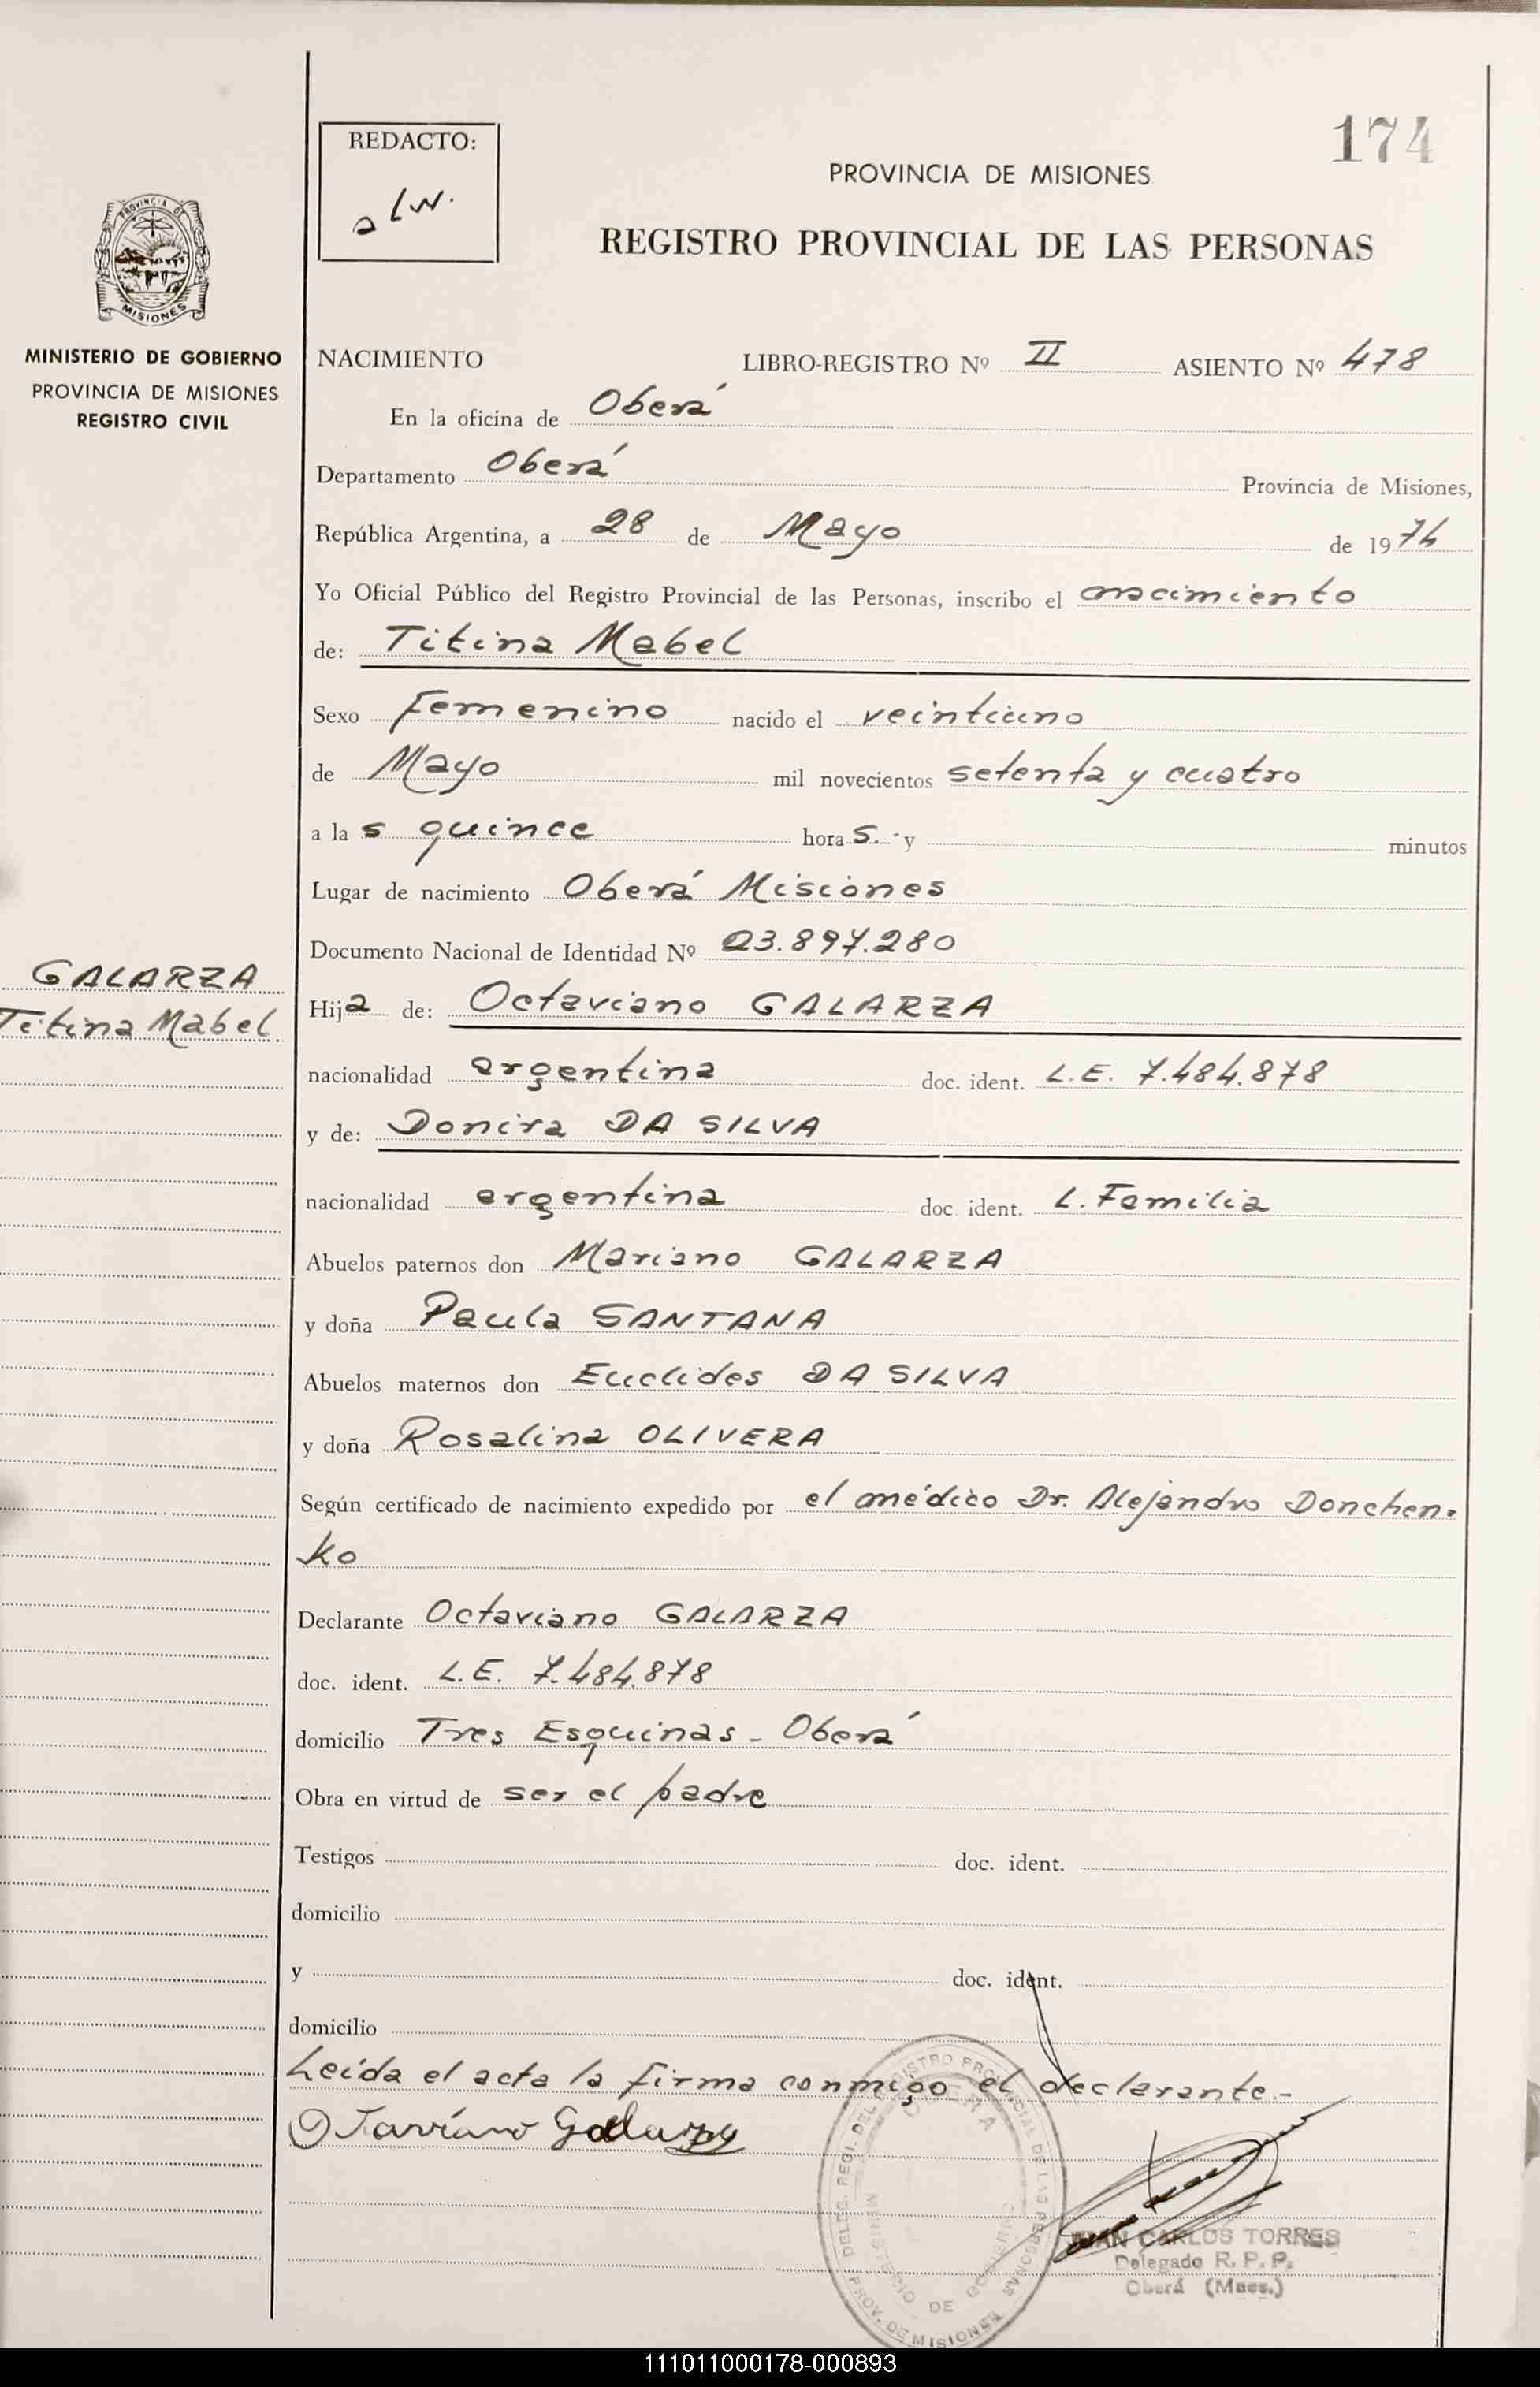 174
REDACTO:
a l w.
PROVINCIA DE MISIONES
REGISTRO PROVINCIAL DE LAS PERSONAS
PROVINCIA DE
MISIONES
MINISTERIO DE GOBIERNO
PROVINCIA DE MISIONES
REGISTRO CIVIL
NACIMIENTO LIBRO-REGISTRO Nº II ASIENTO Nº 478
En la oficina de Oberá
Departamento Oberá Provincia de Misiones,
República Argentina, a 28 de Mayo de 1974
Yo Oficial Público del Registro Provincial de las Personas, inscribo el nacimiento
de: Titina Mabel
Sexo Femenino nacido el veintiuno
de Mayo mil novecientos setenta y cuatro
a las quince horas. - y minutos
Lugar de nacimiento Oberá Misiones
Documento Nacional de Identidad Nº 23.897.280
GALARZA
Titina Mabel
Hija de: Octaviano GALARZA
nacionalidad argentina doc. ident. L.E. 7.484.878
y de: Donira DA SILVA
nacionalidad argentina doc. ident. L. Familia
Abuelos paternos don Mariano GALARZA
y doña Paula SANTANA
Abuelos maternos don Euclides DA SILVA
y doña Rosalina OLIVERA
Según certificado de nacimiento expedido por el médico Dr. Alejandro Donchen-
ko
Declarante Octaviano GALARZA
doc. ident. L.E. 7.484.878
domicilio Tres Esquinas - Oberá
Obra en virtud de ser el padre
Testigos doc. ident.
domicilio
y doc. ident.
domicilio
Leída el acta la firma conmigo el declarante.-
Octaviano Galarza
DELEG. REGI. DEL REGISTRO PROVINCIAL DE LAS PERSONAS
PROV. DE MISIONES
MINISTERIO DE GOBIERNO
JUAN CARLOS TORRES
Delegado R. P. P.
Oberá (Mnes.)
111011000178-000893